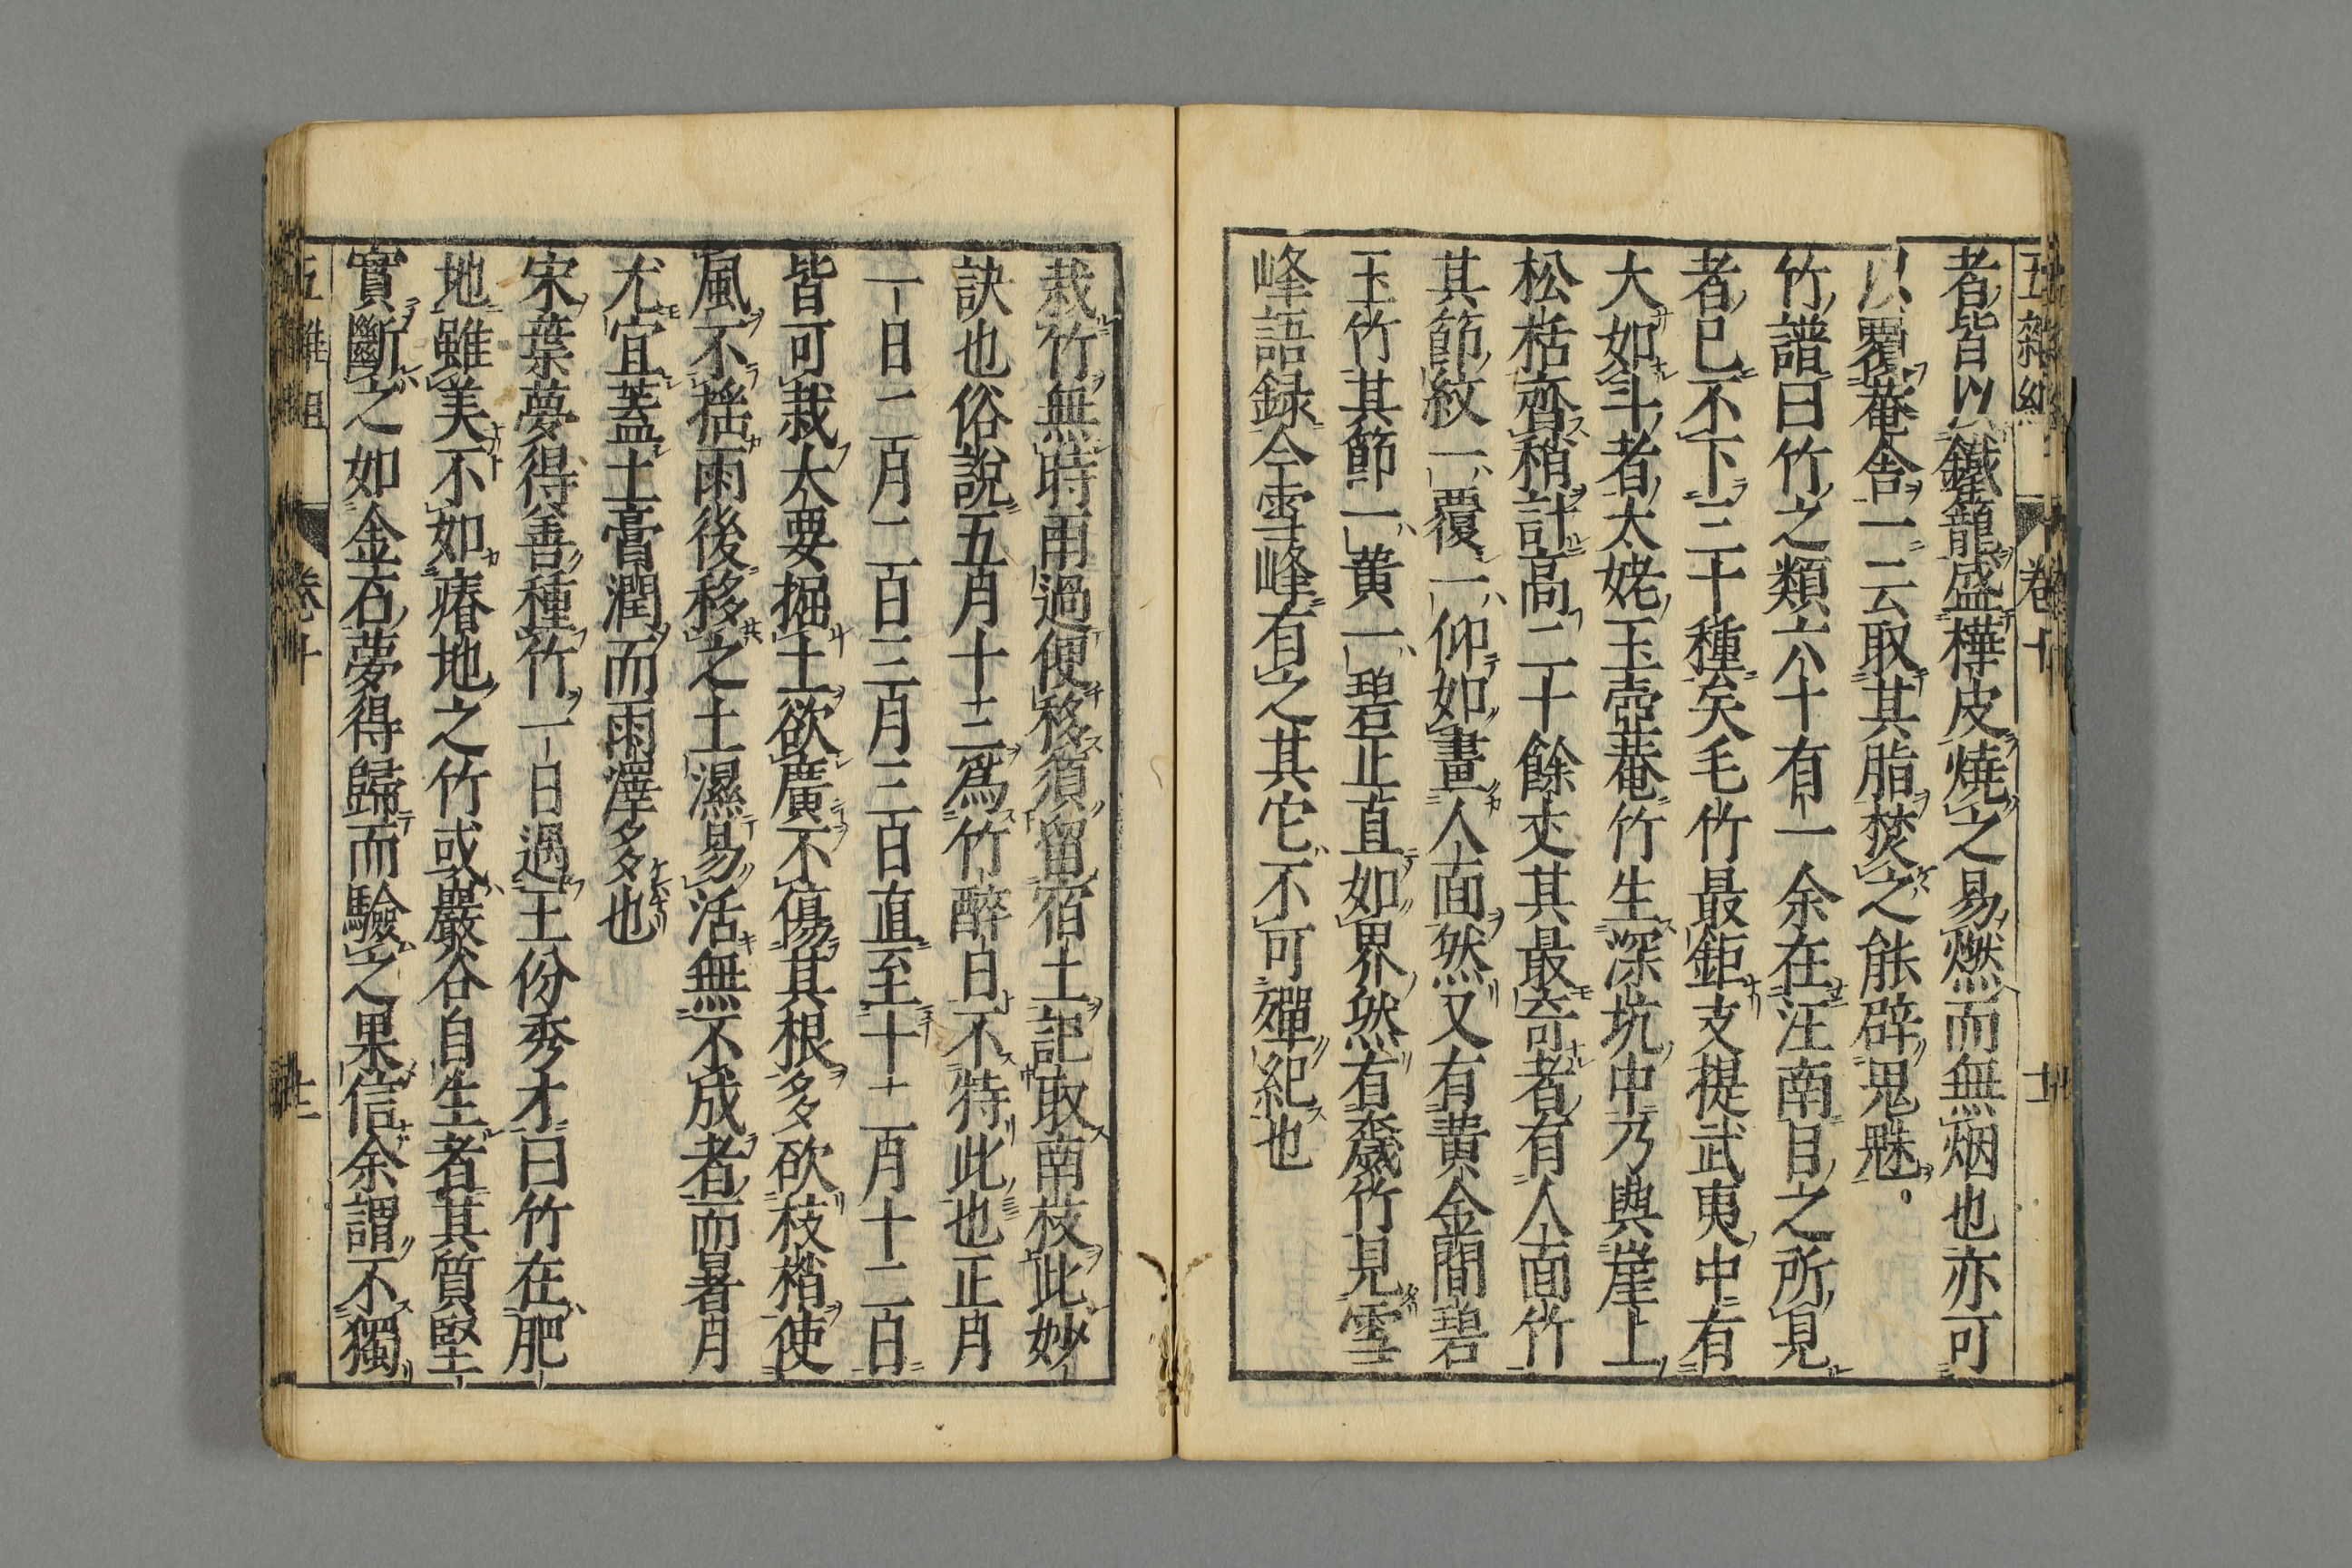 者皆以鐵籠盛樺皮燒之易燃而無烟也亦可
以覆菴舎一云取其脂焚之能辟鬼魅
竹譜曰竹之類六十有一余在江南目之所見
者已不下三十種矣毛竹最鉅支提武夷中有
大如斗者太姥玉壺菴竹生深坑中乃與崖上
松栝齊稍計高二十餘丈其最竒者有人面竹
其節紋一覆一仰如畫人面然又有黄金間碧
玉竹其節一黄一碧正直如界然有䉲竹見雪
峰語録今雪峰有之其它不可殫紀也
栽竹無時雨過便移須留宿土記取南枝此妙
訣也俗說五月十三爲竹醉日不特此也正月
一日二月二日三月三日直至十二月十二日
皆可栽大要掘土欲廣不傷其根多砍枝梢使
風不揺雨後移之土濕易活無不成者而暑月
尤宜蓋土膏潤而雨澤多也
宋葉夢得善種竹一日過王份秀才曰竹在肥
地雖美不如瘠地之竹或巖谷自生者其質堅
實斷之如金石夢得歸而驗之果信余謂不獨
五雜組 卷十